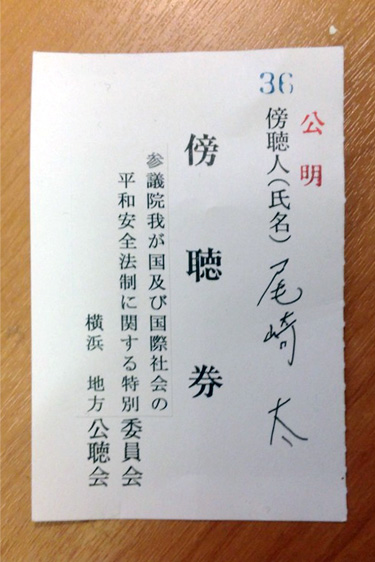 36
公明
傍聴人(氏名) 尾崎 太
傍聴券
参議院我が国及び国際社会の
平和安全法制に関する特別委員会
横浜 地方公聴会